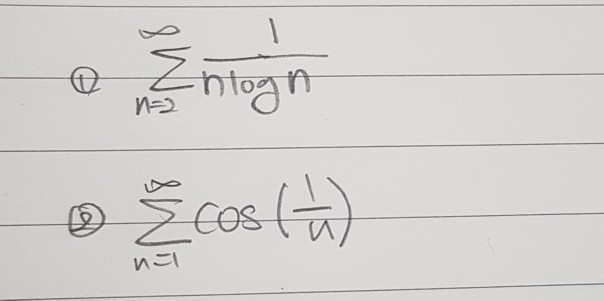 ① ∑_{n=2}^{∞} \frac{1}{n log n}
② ∑_{n=1}^{∞} cos(\frac{1}{n})